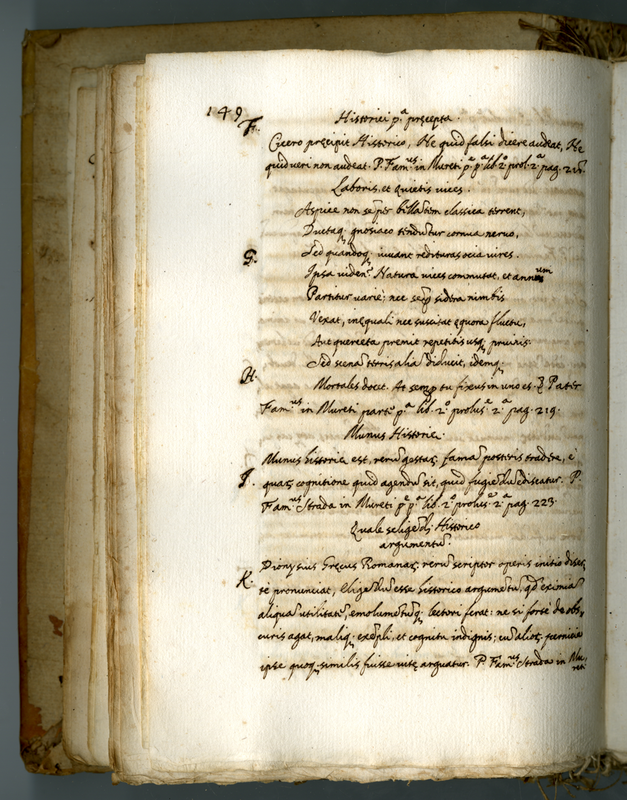 149
F.
Historici p.ª præcepta.
Cicero præcipit Historico, Ne quid falsi dicere audeat, Ne
quid veri non audeat. P. Fam.us in Mureti p.e p.ª lib. 2.º prol. 2.ª pag. 215.
Laboris, et Quietis vices.
Aspice non semper bellantem classica terrent,
Ductaq; gnosiaco tenduntur cornua nervo,
G.
Sed quandoq; iuvant redituras ocia vires.
Ipsa viden? Natura vices commutat, et annum
Partitur varie: nec semp sidera nimbis
Vexat, inequali nec suscitat equora fluctu,
Aut querceta premit repetitis usq; pruinis.
Sed scena terris alia diducit, idemq;
H.
Mortales docet. At semp tu fixus in uno es. Pater
Fam.us in Mureti parte p.ª lib. 2.º prolus.e 2.ª pag. 219.
Munus Historiæ.
Munus historiæ est, rerū gestarū famā posteris tradere, è
J.
quarū cognitione quid agendū sit, quid fugiēdū ediscatur. P.
Fam.us Strada in Mureti p.e p.ª lib. 2.º prolus.e 2.ª pag. 223.
Quale seligēdū Historico
argumentū.
K.
Dionysius Græcus Romanarū rerū scriptor operis initio diser,
tè pronunciat, Eligēdū esse historico argumētū, qd eximiā
aliquā utilitatē, emolumētūq; lectori ferat: ne si fortè de obs,
curis agat, maliq; exēpli, et cognitu indignis; cū alios,
ipse quoq; similis fuisse iustè arguatur. P. Fam.us Strada in Mu,
reti